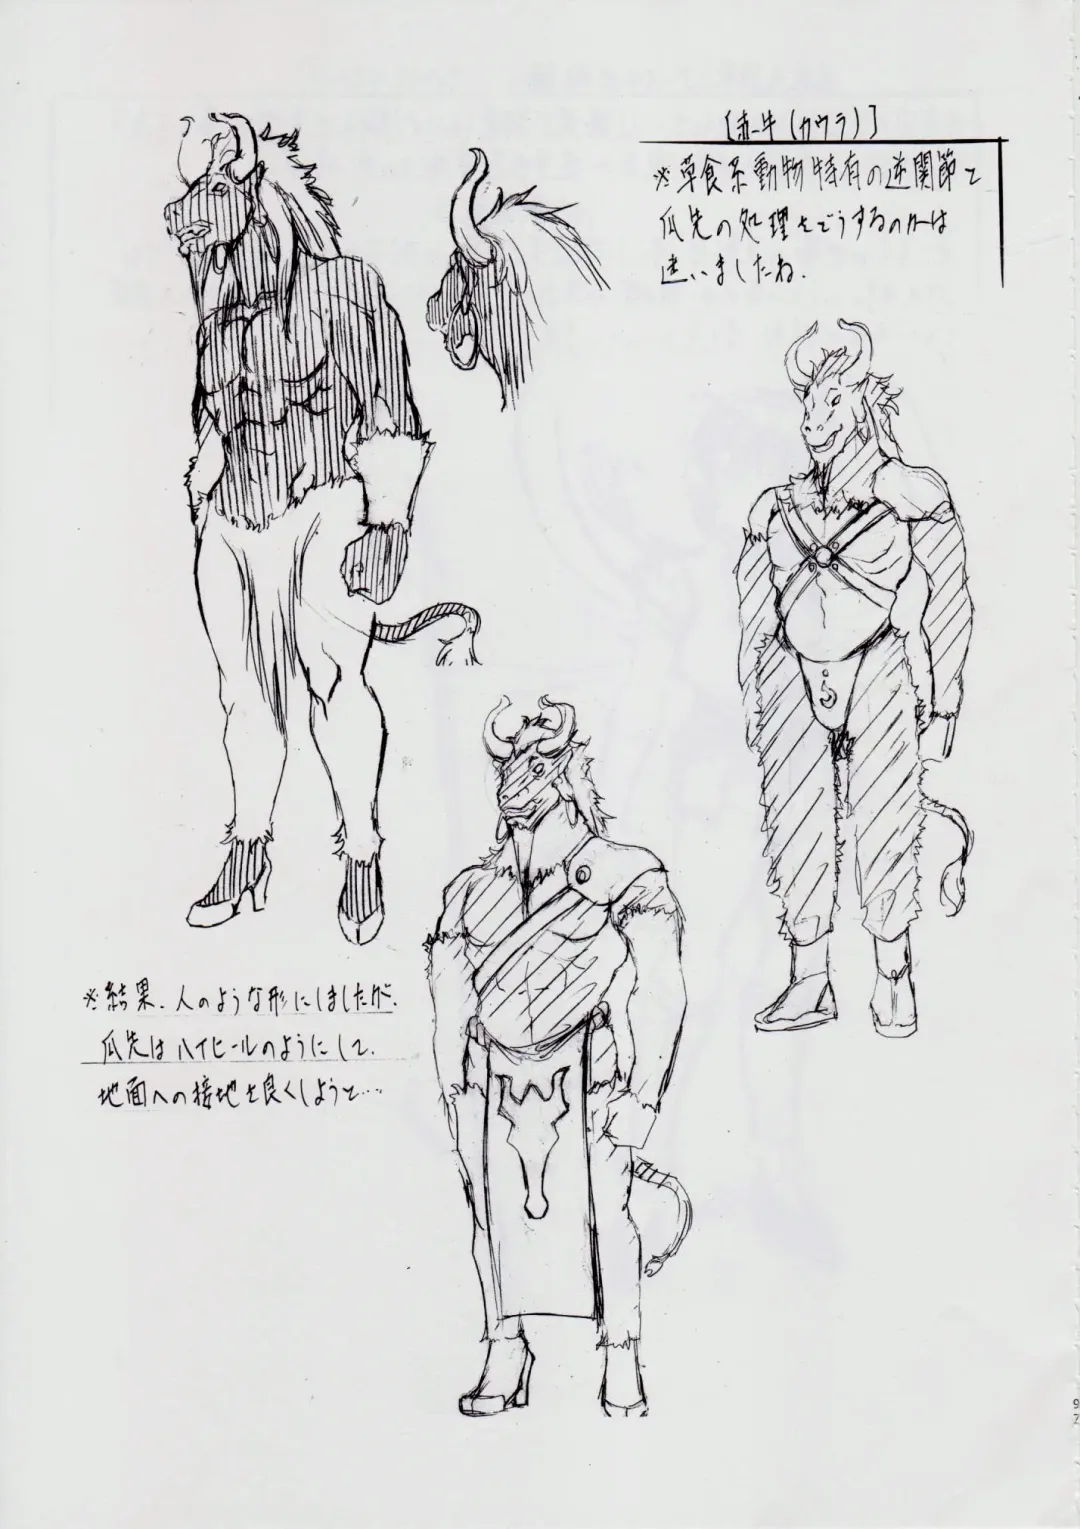 [赤牛(カウラ)]
※草食系動物特有の逆関節と
爪先の処理をどうするのかは
迷いましたね.
※結果、人のような形にしましたが、
爪先はハイヒールのようにして、
地面への接地を良くしようと…
97